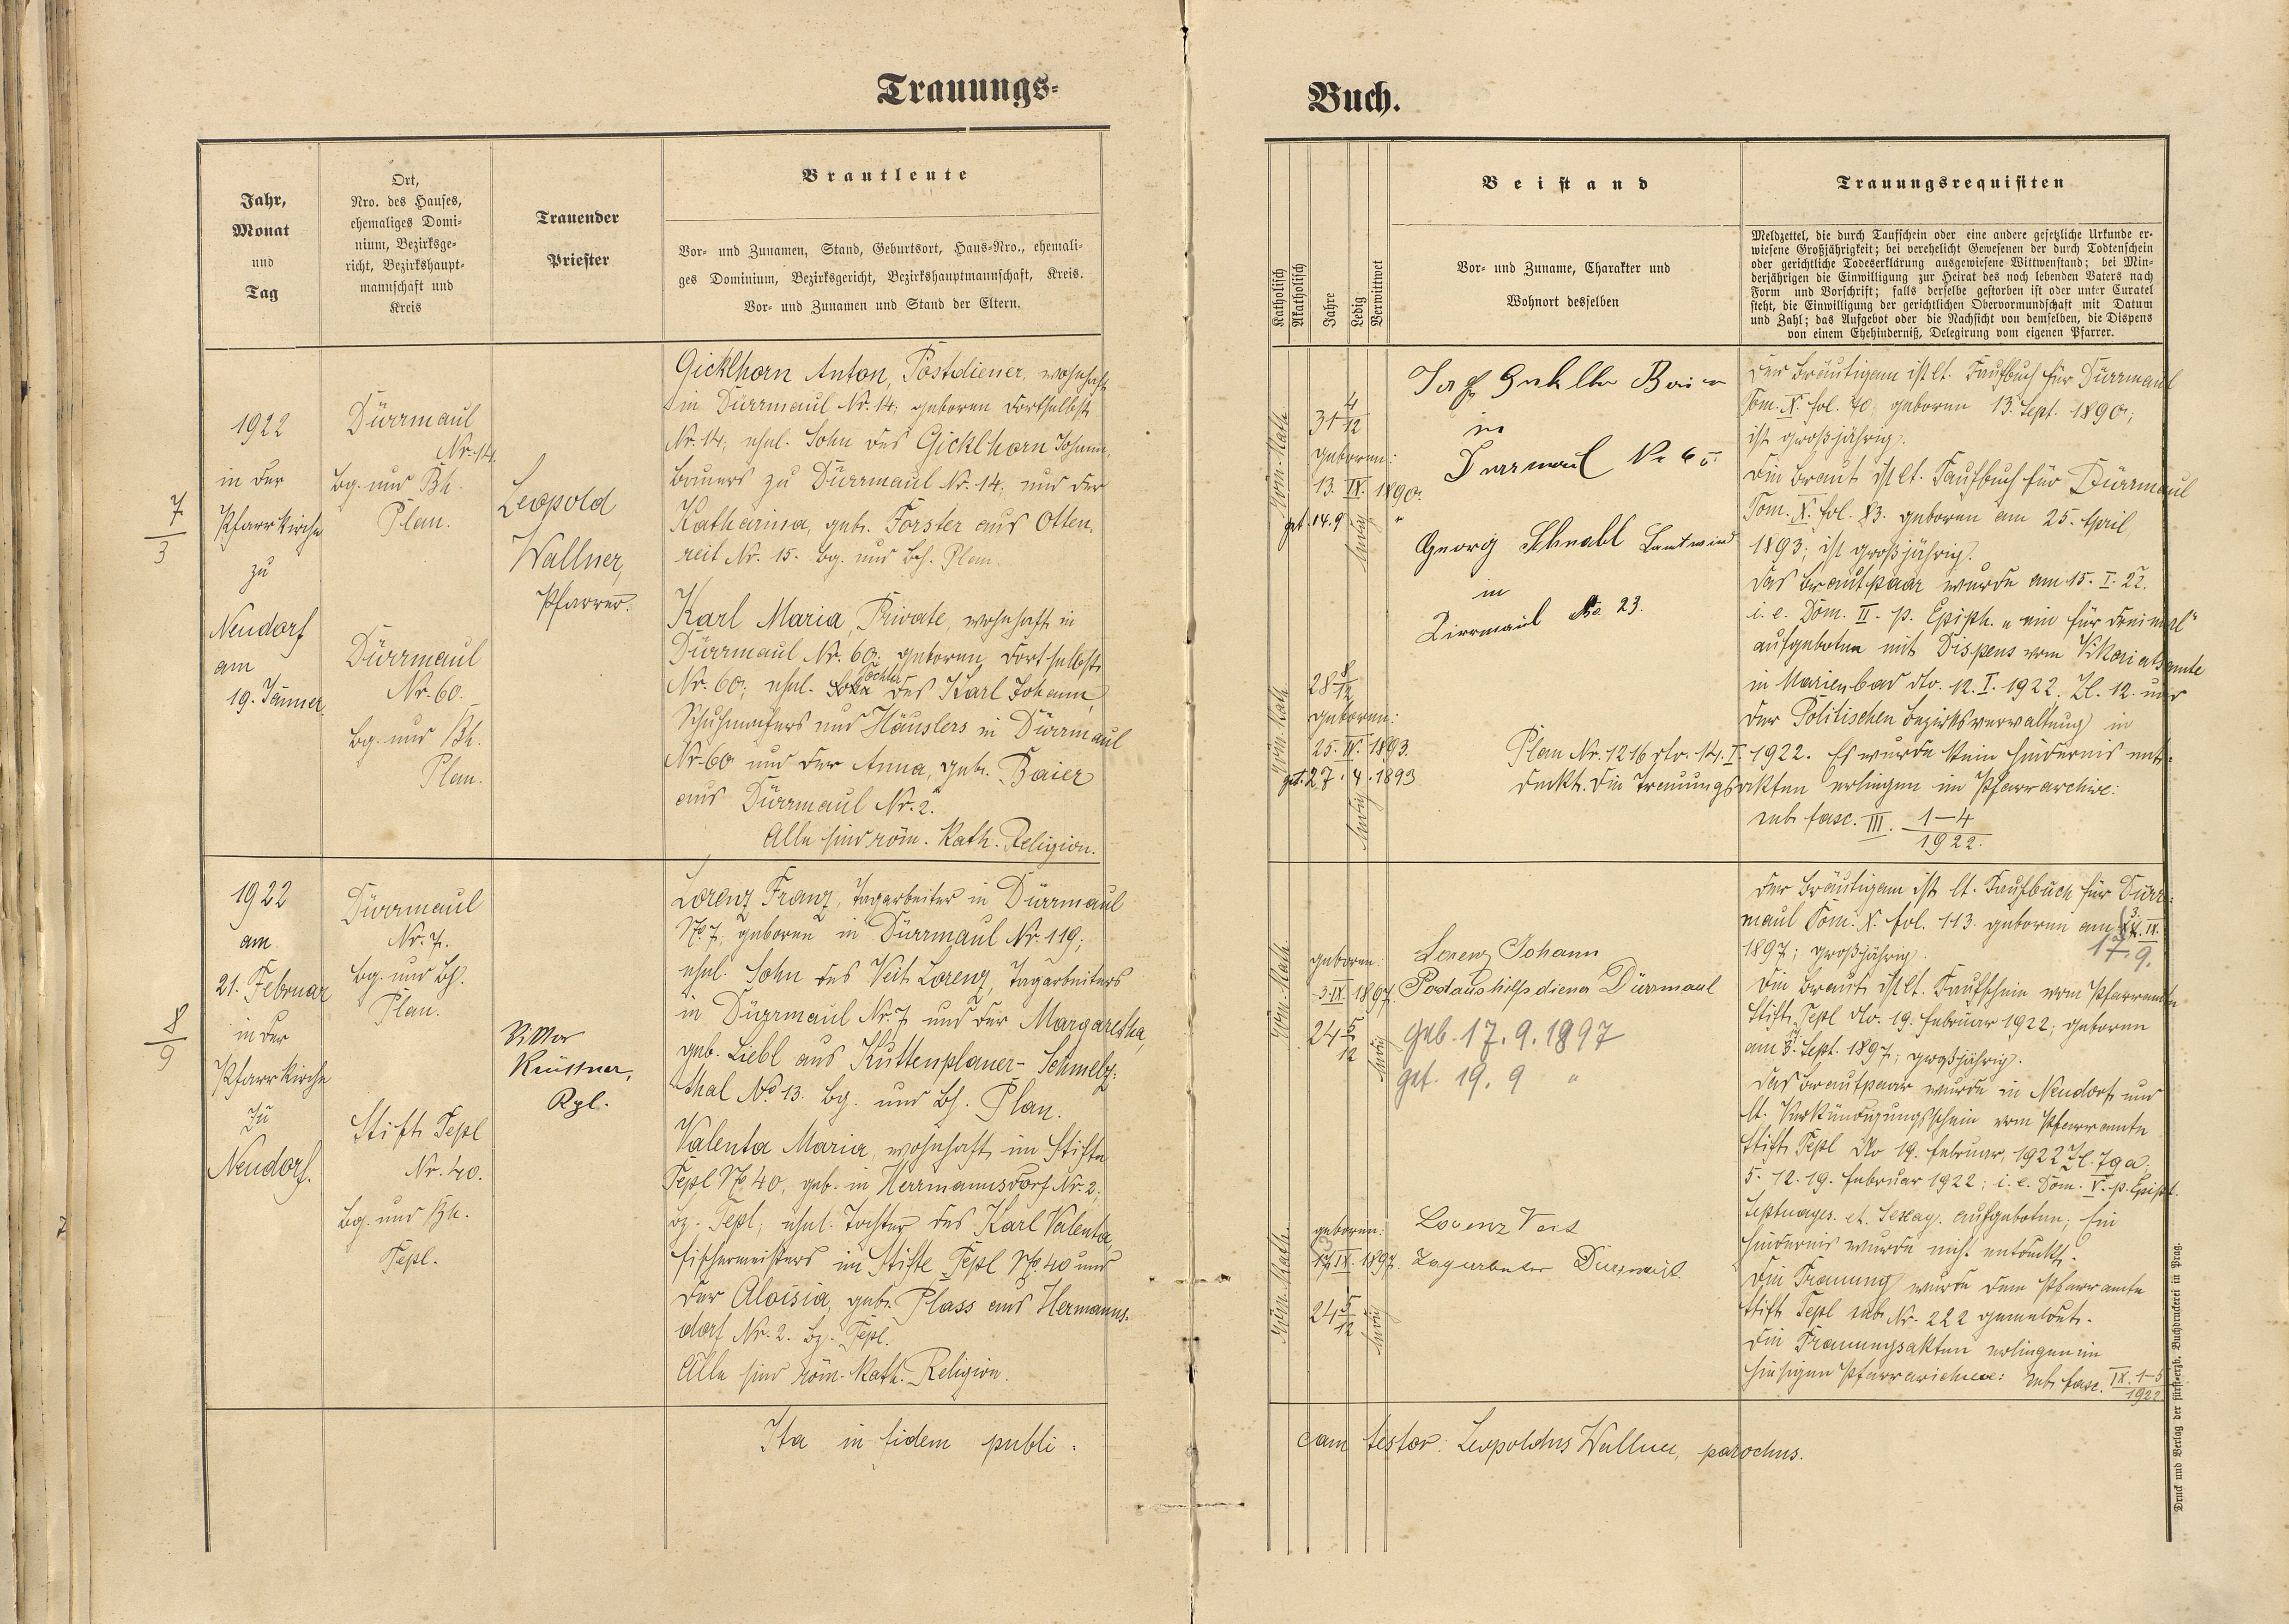 Trauungs-
Jahr,
Monat
und
Tag
Ort,
Nro. des Hauses,
ehemaliges Domi-
nium, Bezirksge-
richt, Bezirkshaupt-
mannschaft und
Kreis
Trauender
Priester
Brautleute
Vor- und Zunamen, Stand, Geburtsort, Haus-Nro., ehemali-
ges Dominium, Bezirksgericht, Bezirkshauptmannschaft, Kreis.
Vor- und Zunamen und Stand der Eltern.
7
3
1922
in der
Pfarrkirche
zu
Neudorf
am
19. Jänner
Dürrmaul
Nr. 14.
Bg. und Bh.
Plan.
Dürrmaul
Nr. 60.
Bg. und Bh.
Plan.
Leopold
Wallner,
Pfarrer.
Gicklhorn Anton, Postdiener, wohnhaft
in Dürrmaul Nr. 14; geboren dortselbst
Nr. 14; ehel. Sohn des Gicklhorn Johann,
Bauers zu Dürrmaul Nr. 14; und der
Katharina, geb. Forster aus Otten-
reit Nr. 15. Bg. und Bh. Plan.
Karl Maria, Private, wohnhaft in
Dürrmaul Nr. 60. geboren dortselbst
Nr. 60; ehel. Tochter des Karl Johann,
Schuhmachers und Häuslers in Dürrmaul
Nr. 60 und der Anna, geb. Baier
aus Dürrmaul Nr. 2.
Alle sind röm. kath. Religion.
8
9
1922
am
21. Februar
in der
Pfarrkirche
zu
Neudorf.
Dürrmaul
Nr. 7.
Bg. und Bh.
Plan.
Stift Tepl
Nr. 40.
Bg. und Bh.
Tepl.
Viktor
Kpl.
Lorenz Franz, Tagarbeiter in Dürrmaul
No 7, geboren in Dürrmaul Nr. 119;
ehel. Sohn des Veit Lorenz, Tagarbeiters
in Dürrmaul Nr. 7 und der Margaretha,
geb. Liebl aus Kuttenplaner-Schmelz-
thal No 13. Bg. und Bh. Plan.
Valenta Maria, wohnhaft im Stifte
Tepl No 40, geb. in Herrmannsdorf Nr. 2;
Bz. Tepl; ehel. Tochter des Karl Valenta,
Fischermeisters im Stifte Tepl No 40 und
der Aloisia, geb. Plass aus Hermanns-
dorf Nr. 2. Bz. Tepl.
Alle sind röm. kath. Religion.
Ita in fidem publi-
Buch.
Katholisch
Akatholisch
Jahre
Ledig
Verwittwet
Beistand
Vor- und Zuname, Charakter und
Wohnort desselben
Trauungsrequisiten
Meldzettel, die durch Taufschein oder eine andere gesetzliche Urkunde er-
wiesene Großjährigkeit; bei verehelicht Gewesenen der durch Todtenschein
oder gerichtliche Todeserklärung ausgewiesene Wittwenstand; bei Min-
derjährigen die Einwilligung zur Heirat des noch lebenden Vaters nach
Form und Vorschrift; falls derselbe gestorben ist oder unter Curatel
steht, die Einwilligung der gerichtlichen Obervormundschaft mit Datum
und Zahl; das Aufgebot oder die Nachsicht von demselben, die Dispens
von einem Ehehinderniß, Delegirung vom eigenen Pfarrer.
Röm. Kath.
31 4/12
geboren:
13. IX. 1890.
get. 14. 9 "
ledig
in
Dürrmaul Nr 65
Georg Schnabl Landwird
in
Dirrmaul No. 23.
Röm. Kath.
28 8/12
geboren:
25. IV. 1893.
get. 27. 4. 1893
ledig
Der Bräutigam ist lt. Taufbuch für Dürrmaul
Tom. X. fol. 70; geboren 13. Sept. 1890;
ist großjährig.
Die Braut ist lt. Taufbuch für Dürrmaul
Tom. X. fol. 83. geboren am 25. April
1893; ist großjährig.
Das Brautpaar wurde am 15. I. 22.
i. e. Dom. II. p. Epiph. „ein für dreimal"
aufgeboten mit Dispens vom Vikariatsamte
in Marienbad dto. 12. I. 1922. Zl. 12. und
der Politischen Bezirksverwaltung in
Plan Nr. 1216 dto. 14. I. 1922. Es wurde kein Hindernis ent-
deckt. Die Trauungsakten erliegen im Pfarrarchive:
sub fasc. III. 1-4/1922.
Röm. Kath.
geboren:
3. IX. 1897.
24 5/12
ledig
Lorenz Johann
Postaushilfsdiener Dürrmaul
geb. 17. 9. 1897
get. 19. 9 "
Röm. Kath.
geboren:
IX. 1897.
24 5/12
ledig
Lorenz Veit
Tagarbeiter Dürrmaul
Der Bräutigam ist lt. Taufbuch für Dürr-
maul Tom. X. fol. 113. geboren am 3. IX.
17. 9.
1897; großjährig.
Die Braut ist lt. Taufschein vom Pfarramte
Stift Tepl dto. 19. Februar 1922; geboren
am 3. Sept. 1897; großjährig.
Das Brautpaar wurde in Neudorf und
lt. Verkündigungsschein vom Pfarramte
Stift Tepl dto 19. Februar, 1922 Zl. 79 a;
5. 12. 19. Februar 1922; i. e. Dom. V. p. Epiph.
Septuages. et. Sexag. aufgeboten; Ein
Hindernis wurde nicht entdeckt.
Die Trauung wurde dem Pfarramte
Stift Tepl sub Nr. 222 gemeldet.
Die Trauungsakten erliegen im
hiesigen Pfarrarchive: sub fasc. IX. 1-5/1922
cam testor: Leopoldus Wallner, parochus.
Druck und Verlag der fürsterzb. Buchdruckerei in Prag.